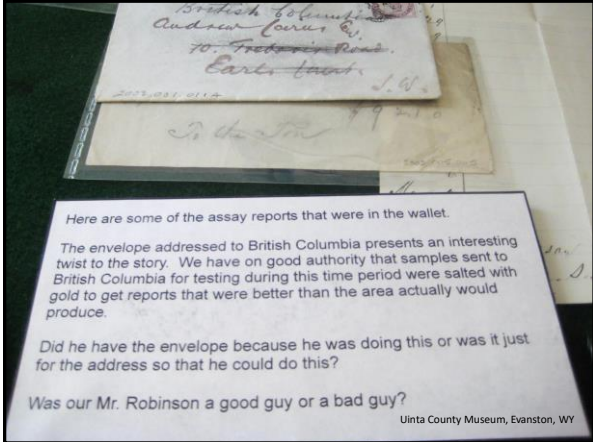 British Columbia
Andrew
Road.
Earls Court.
S.W.
To the
Here are some of the assay reports that were in the wallet.
The envelope addressed to British Columbia presents an interesting
twist to the story. We have on good authority that samples sent to
British Columbia for testing during this time period were salted with
gold to get reports that were better than the area actually would
produce.
Did he have the envelope because he was doing this or was it just
for the address so that he could do this?
Was our Mr. Robinson a good guy or a bad guy?
Uinta County Museum, Evanston, WY